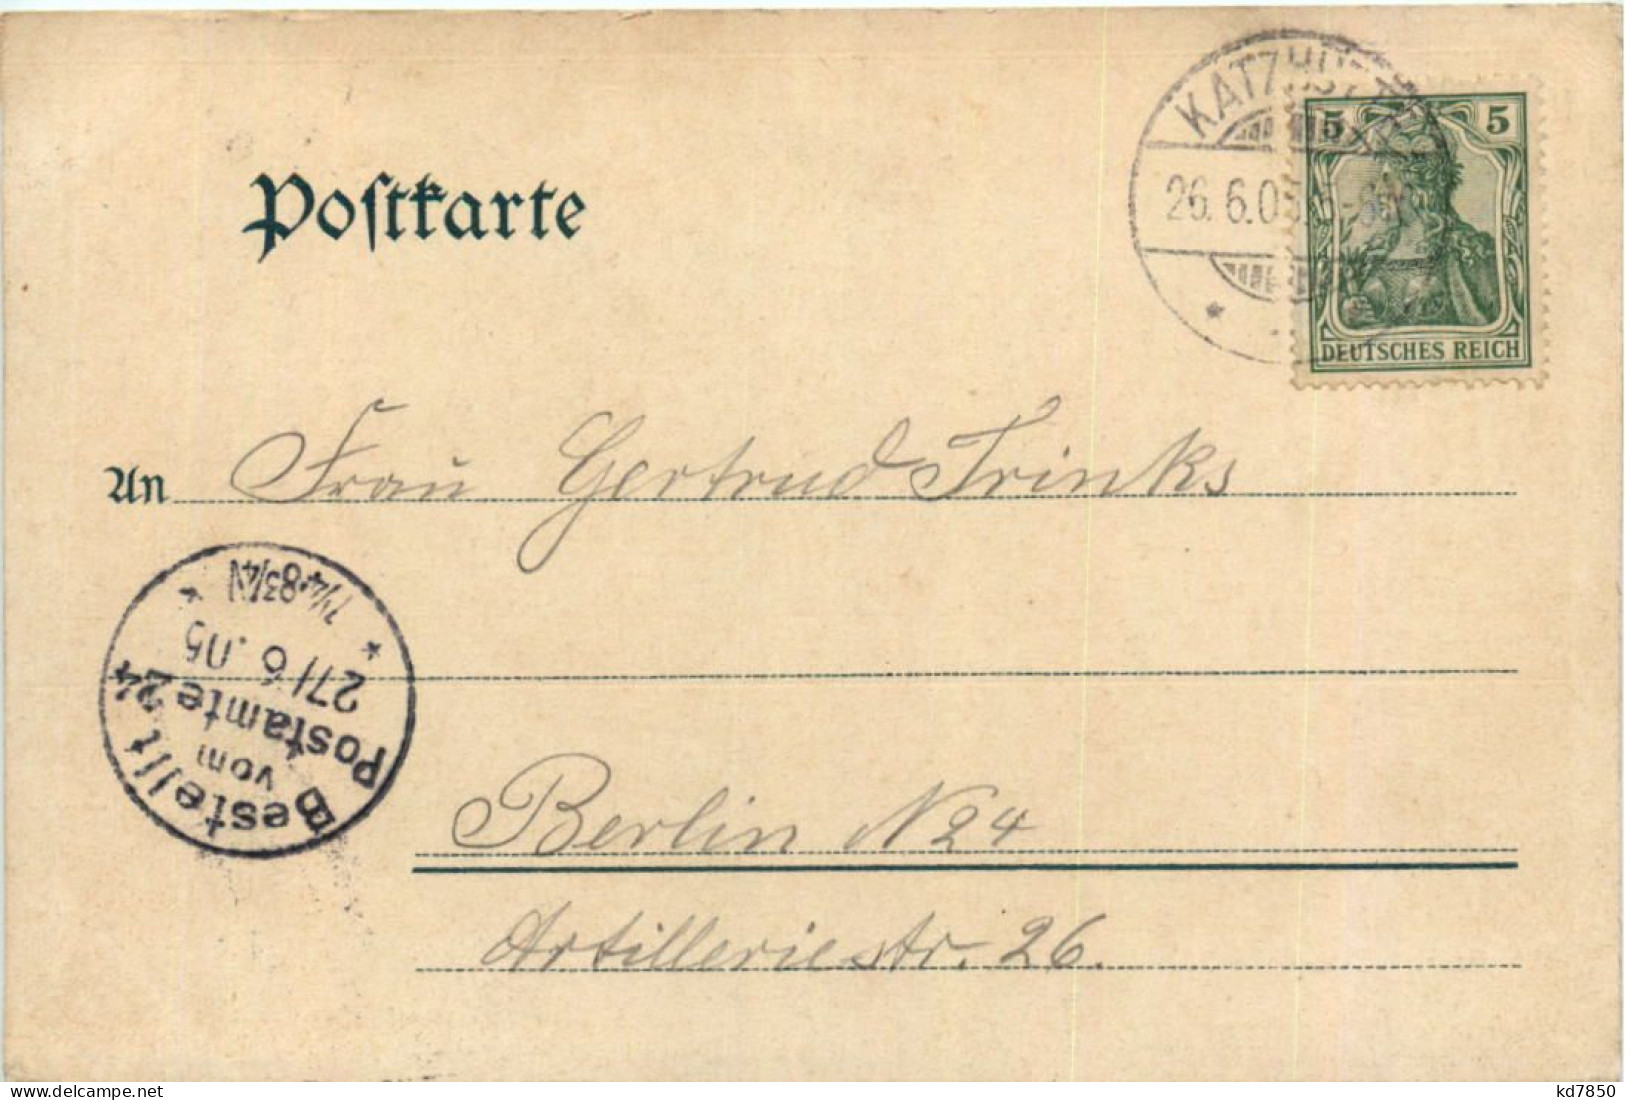 Postkarte
KATZHÜTTE
26. 6. 05. 5-6N
5 5
DEUTSCHES REICH
An Frau Gertrud Trinks
Bestellt
vom
Postamte 24
27/6.05
7 1/4-8 3/4 N
Berlin N 24
Artilleriestr. 26.
www.delcampe.net
kd7850